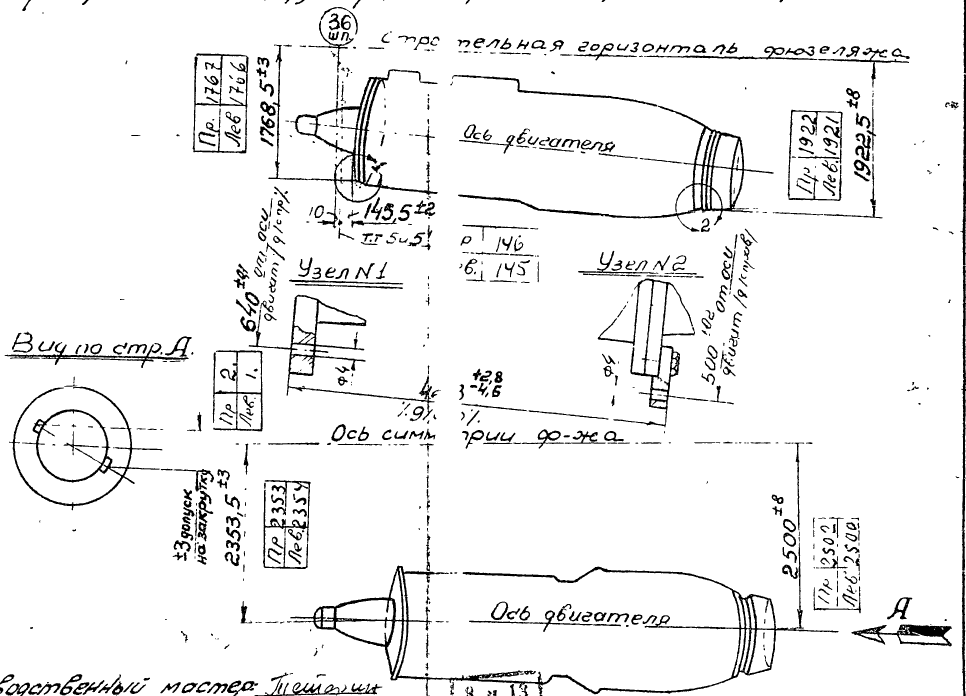 36
шп.
Строительная горизонталь фюзеляжа
Пр. 1767
Лев 1766
1768,5 ±3
Ось двигателя
Пр 1922
Лев. 1921
1922,5 ±8
10
145,5 ±2
т.т 5 и 5
146
145
2
Узел N1
Узел N2
640 ±0,1 от оси
500 ±0,2 от оси
Вид по стр. А.
Пр 2.
Лев. 1.
ф4
ф4
+2,8
-4,6
Ось симметрии ф-жа
±3 допуск
на закрутку
2353,5 ±3
Пр 2353
Лев. 2354
2500 ±8
Пр 2502
Лев 2500
Ось двигателя
А
мастер